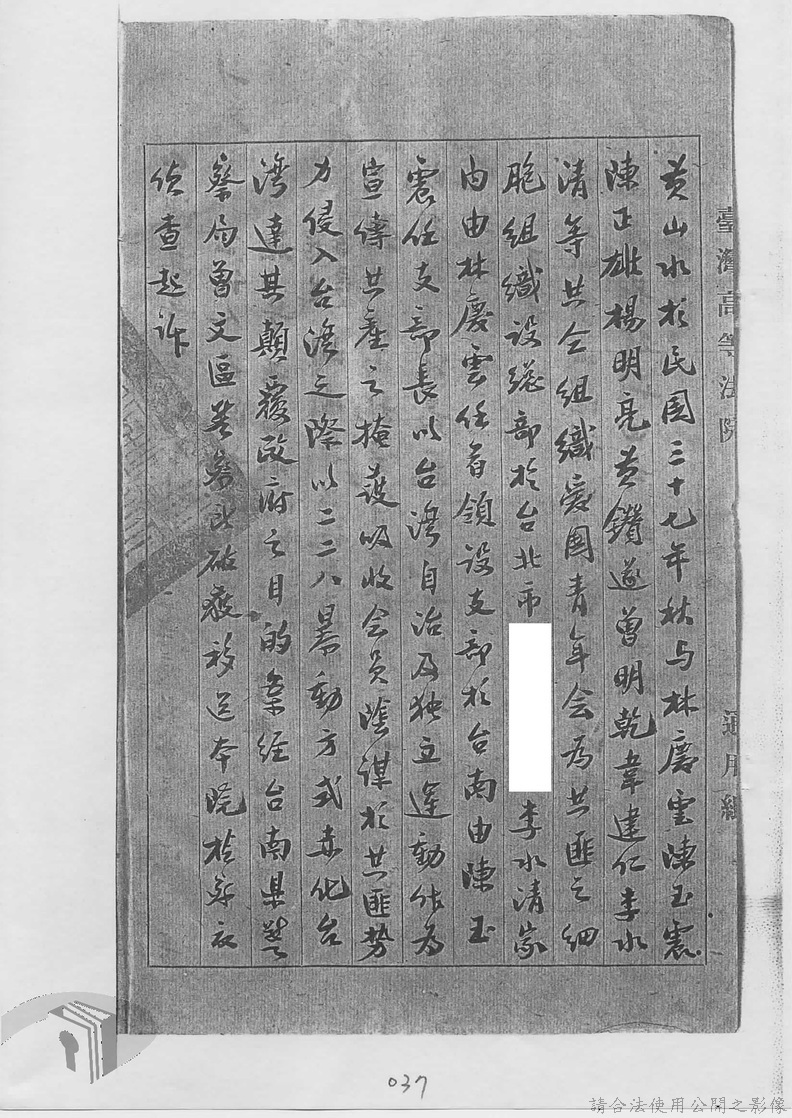 臺灣高等法院
通用紙
黃山水於民國三十七年秋与林慶雲陳玉震
陳正雄楊明亮黃鑽遂曾明乾韋建仁李水
清等共仝組織愛國青年会為共匪之細
胞組織設總部於台北市 李水清家
內由林慶雲任首領設支部於台南由陳玉
震任支部長以台湾自治及独立運動作為
宣傳共產之掩護吸收会員陰謀於共匪势
力侵入台湾之際以二二八暴動方式赤化台
湾達其顛覆政府之目的案經台南县警
察局曾文區警察所破獲移送本院檢察官
侦查起訴
037
請合法使用公開之影像